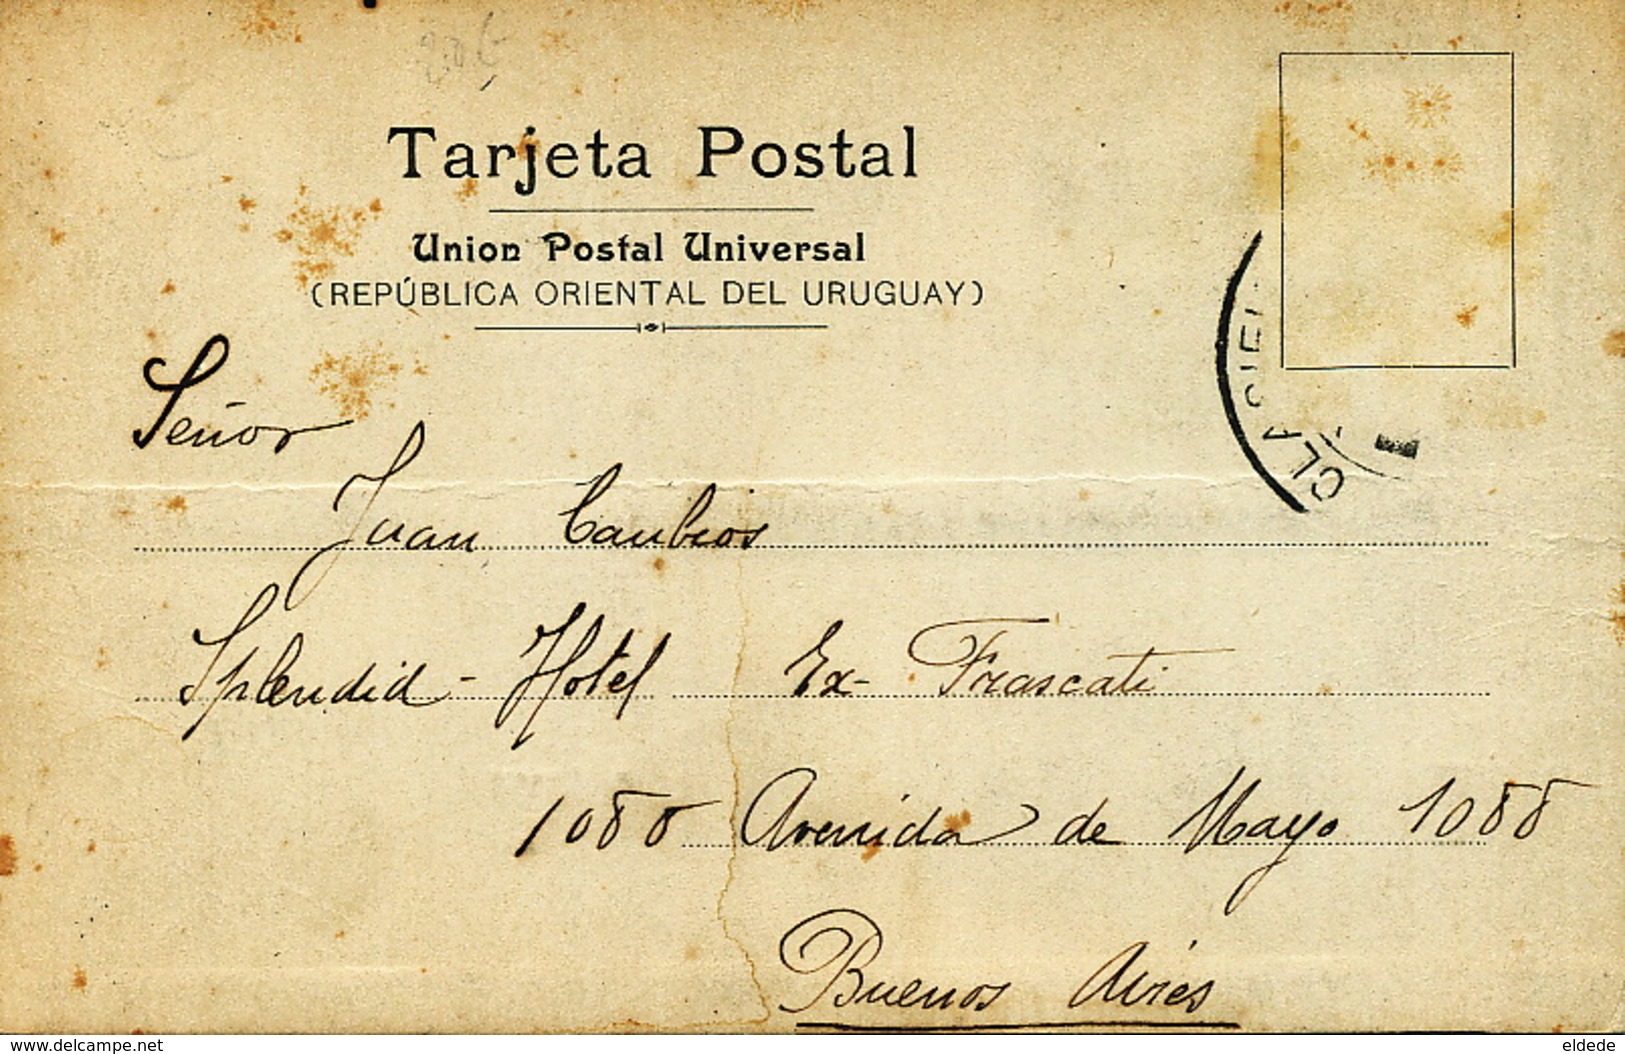 Tarjeta Postal
Union Postal Universal
(REPÚBLICA ORIENTAL DEL URUGUAY)
Señor
Juan
Splendid - Hotel Ex- Frascati
1088 Avenida de Mayo 1088
Buenos Aires
delcampe.net
eldede